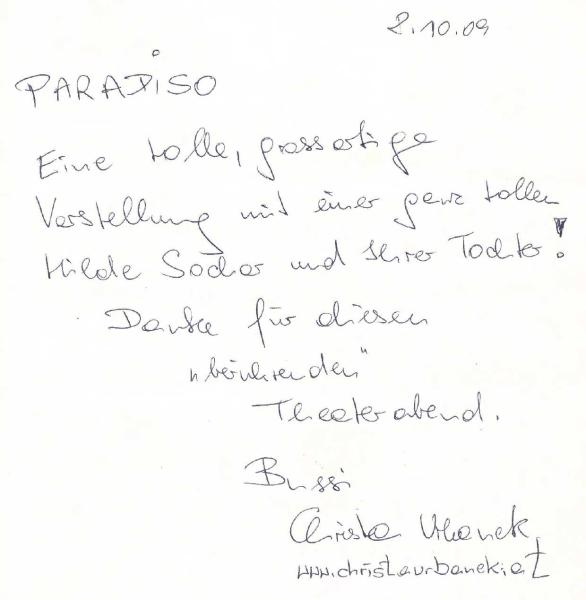 2.10.09
PARADiSO
Eine tolle, grossartige
Vorstellung mit einer ganz tollen
Hilde Sochor und Ihrer Tochter!
Danke für diesen
„berührenden"
Theaterabend.
Bussi
Christa Urbanek
www.christaurbanek.at